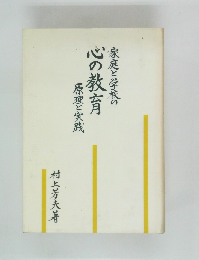 家庭と学校の
心の教育
原理と実践
村上芳夫著